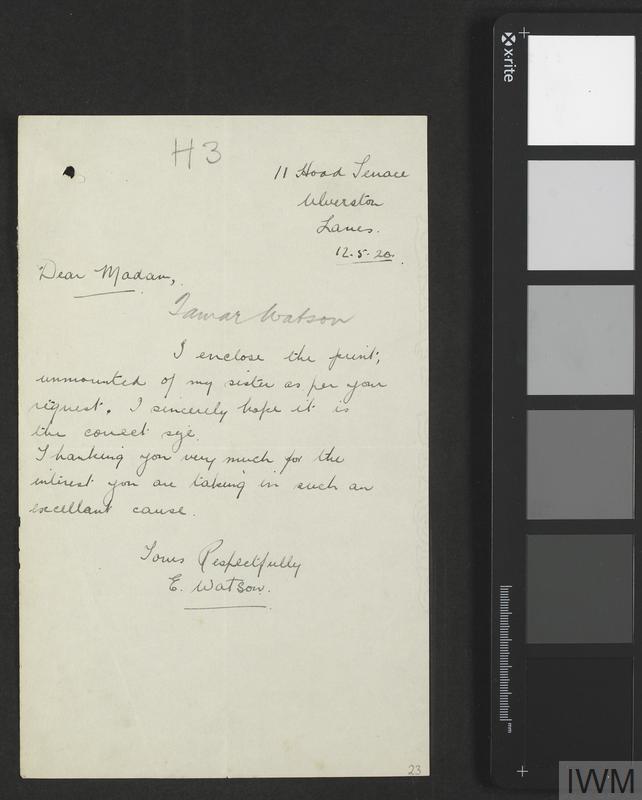 H3
11 Hood Terrace
Ulverston
Lancs.
12.5.20.
Dear Madam,
Tamar Watson
I enclose the print,
unmounted of my sister as per your
request. I sincerely hope it is
the correct size.
Thanking you very much for the
interest you are taking in such an
excellant cause.
Yours Respectfully
E. Watson.
23
x-rite
mm
IWM